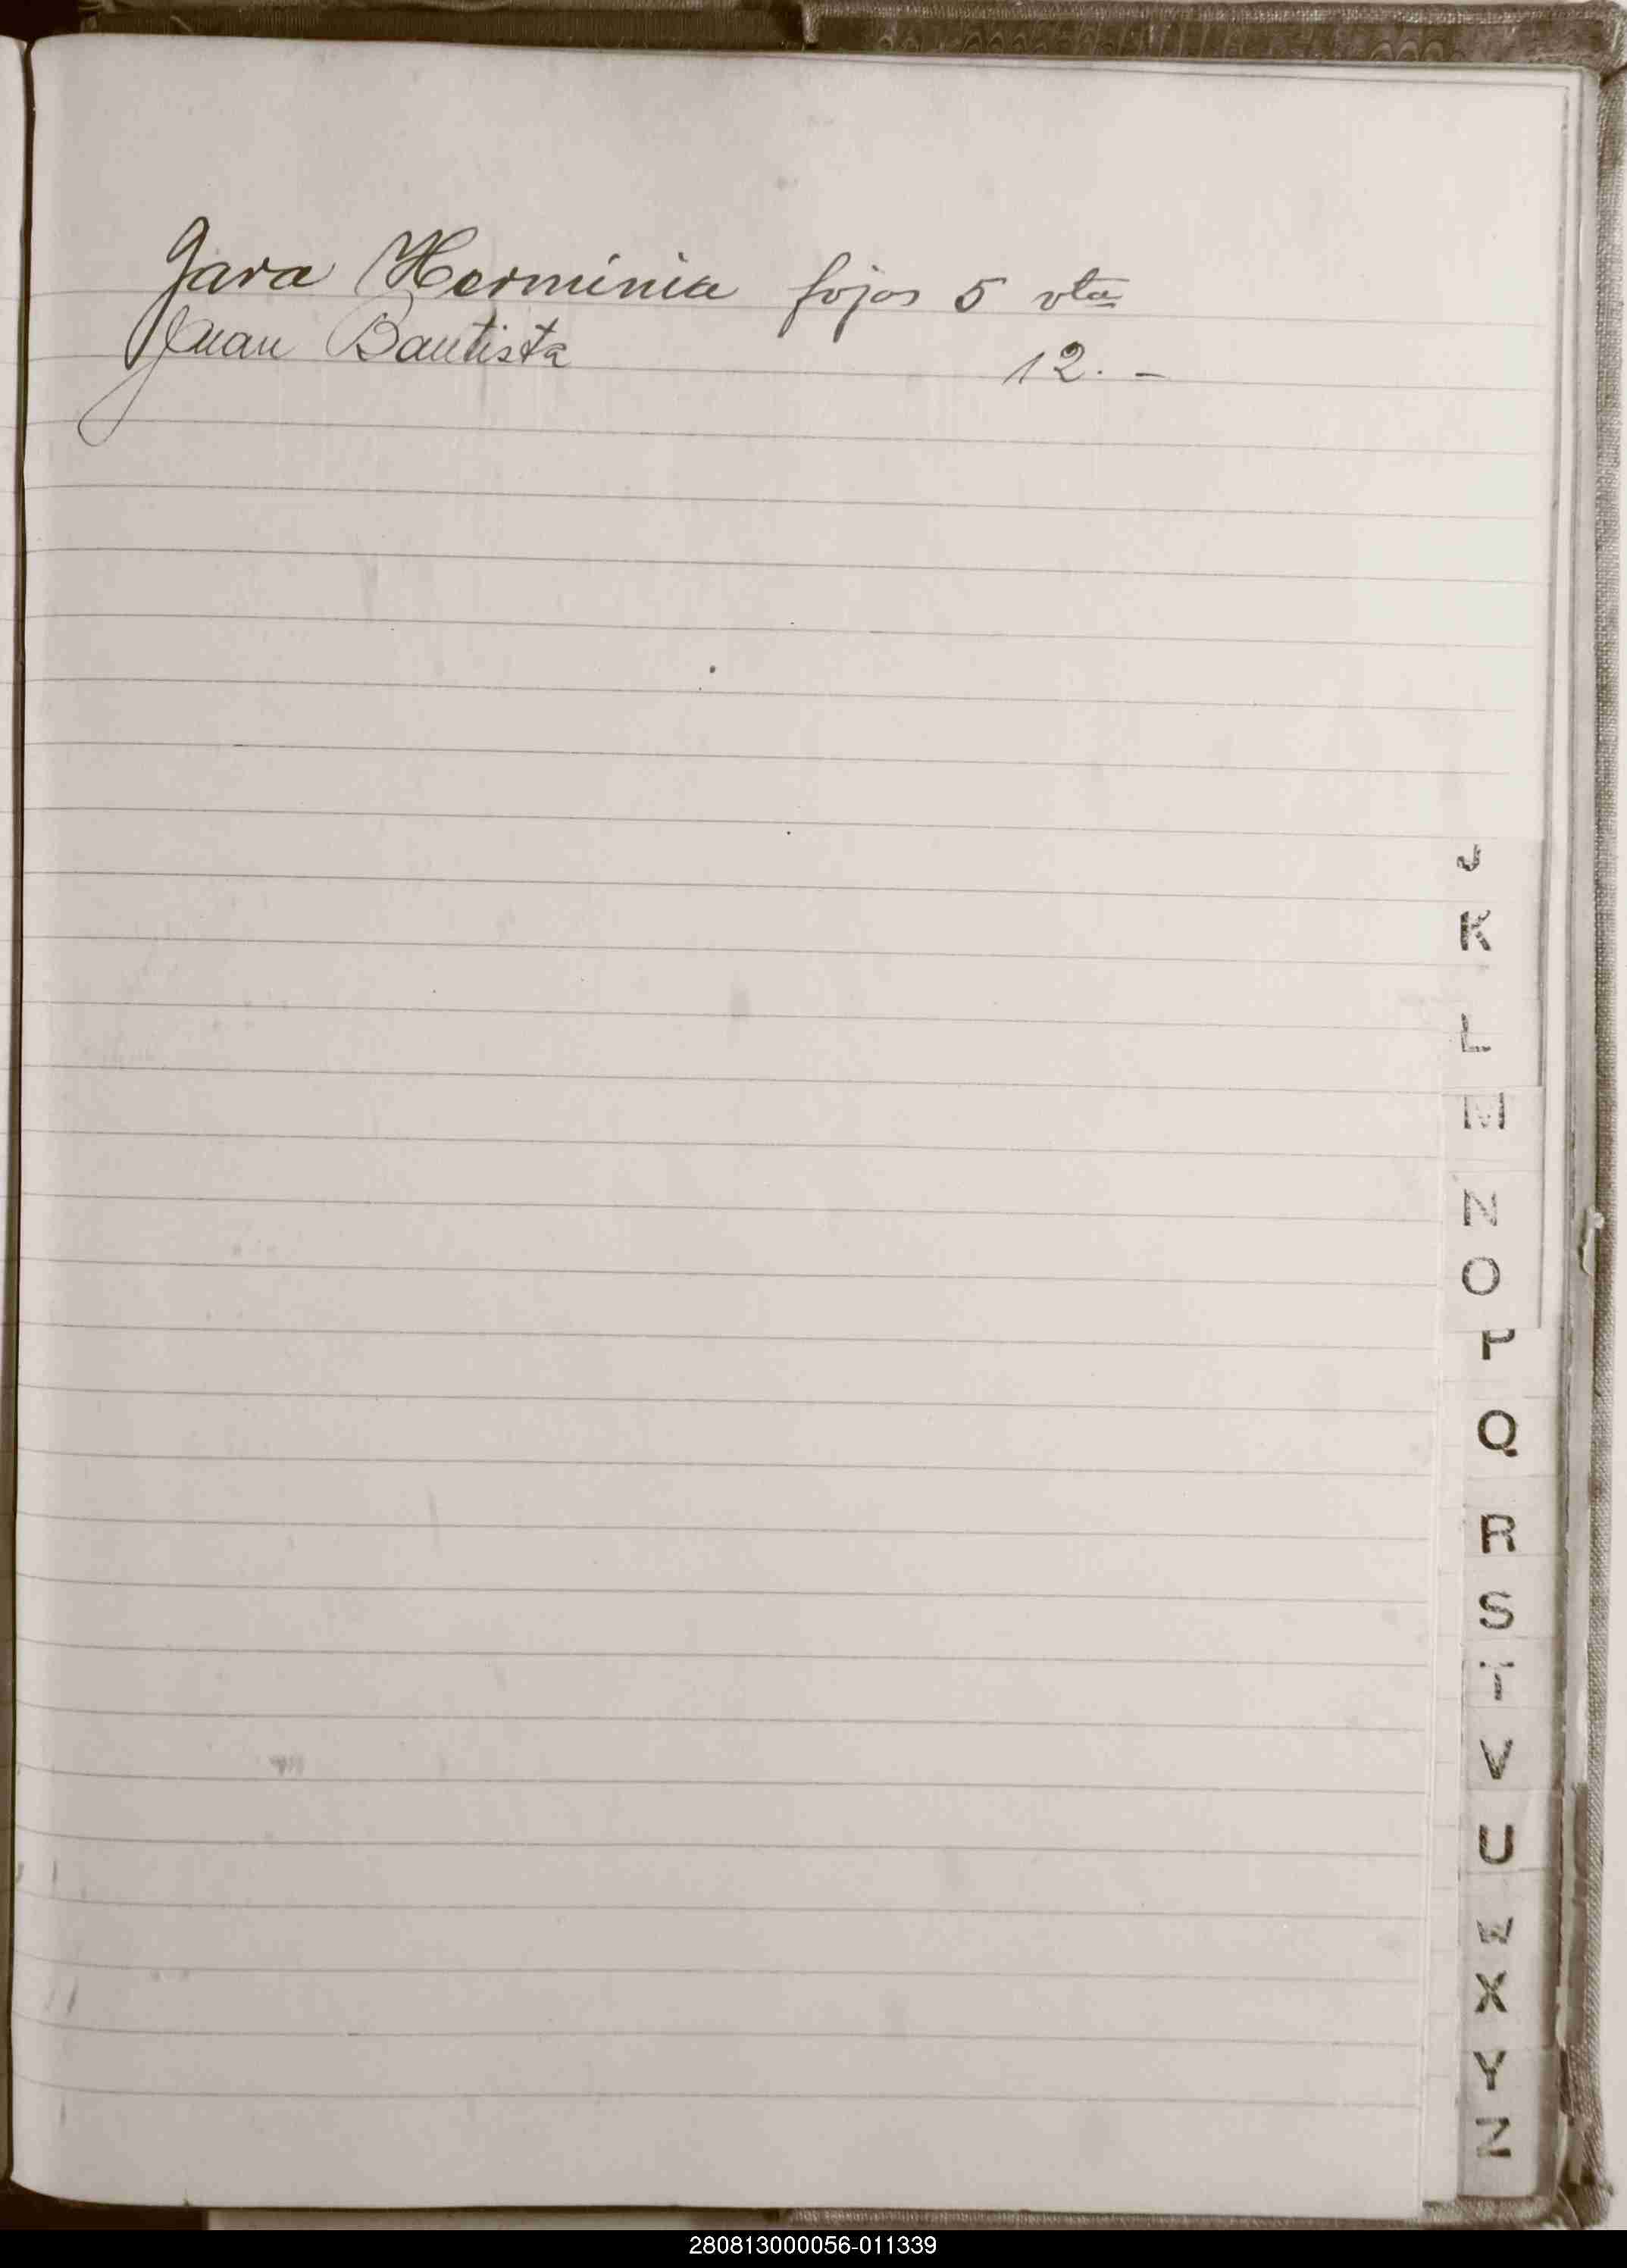 Jara Herminia fojas 5 vta
Juan Bautista 12. -
J
K
L
M
N
O
P
Q
R
S
T
V
U
W
X
Y
Z
280813000056-011339